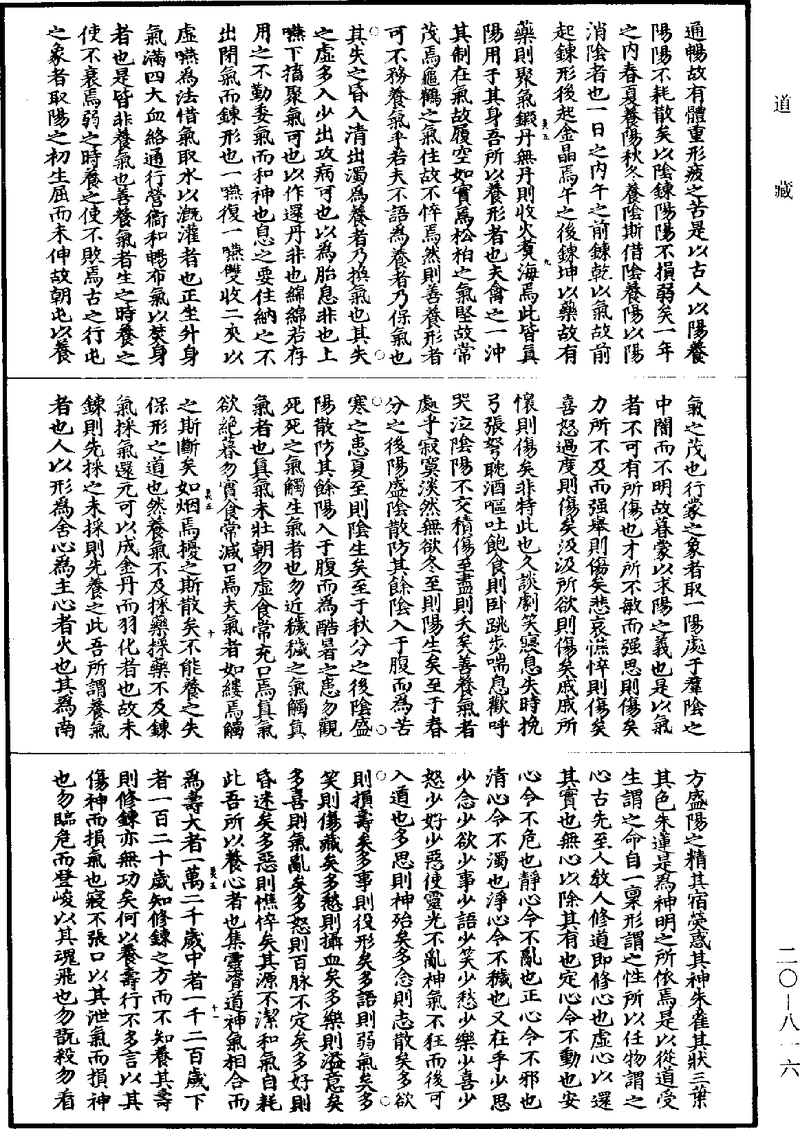 道藏
二〇—八一六
通暢故有體重形疲之苦是以古人以陽養
陽陽不耗散矣以陰鍊陽陽不損弱矣一年
之內春夏養陽秋冬養陰斯借陰養陽以陽
消陰者也一日之內午之前鍊乾以氣故前
起鍊形後起金晶焉午之後鍊坤以藥故有
藥則聚氣鍜丹無丹則收火煑海焉此皆真
陽用于其身吾所以養形者也夫禽之一沖
其制在氣故履空如實焉松柏之氣堅故常
茂焉龜鶴之氣住故不悴焉然則善養形者
可不務養氣乎若夫不語為養者乃保氣也
其失之昏入清出濁為養者乃換氣也其失
之虛多入少出攻病可也以為胎息非也上
嚥下搐聚氣可也以作還丹非也綿綿若存
用之不勤委氣而和神也息之要住納之不
出閉氣而鍊形也一嚥復一嚥雙收二夾以
虛嚥為法惜氣取水以溉灌者也正坐升身
氣滿四大血絡通行營衛和暢布氣以焚身
者也是皆非養氣也善養氣者生之時養之
使不衰焉弱之時養之使不敗焉古之行屯
之象者取陽之初生屈而未伸故朝屯以養
氣之茂也行蒙之象者取一陽處于羣陰之
中闇而不明故暮蒙以求陽之義也是以氣
者不可有所傷也才所不敏而强思則傷矣
力所不及而强舉則傷矣悲哀憔悴則傷矣
喜怒過度則傷矣汲汲所欲則傷矣戚戚所
懷則傷矣非特此也久談劇笑寢息失時挽
弓張弩耽酒嘔吐飽食則臥跳步喘息歡呼
哭泣陰陽不交積傷至盡則夭矣善養氣者
處乎寂寞淡然無欲冬至則陽生矣至于春
分之後陽盛陰散防其餘陰入于腹而為苦
寒之患夏至則陰生矣至于秋分之後陰盛
陽散防其餘陽入于腹而為酷暑之患勿觀
死死之氣觸生氣者也勿近穢穢之氣觸真
氣者也真氣未壯朝勿虛食常充口焉真氣
欲絕暮勿實食常減口焉夫氣者如縷焉觸
之斯斷矣如烟焉擾之斯散矣不能養之失
保形之道也然養氣不及採藥採藥不及鍊
氣採氣還元可以成金丹而羽化者也故未
鍊則先採之未採則先養之此吾所謂養氣
者也人以形為舍心為主心者火也其為南
方盛陽之精其宿熒惑其神朱雀其狀三葉
其色朱蓮是為神明之所依焉是以從道受
生謂之命自一稟形謂之性所以任物謂之
心古先至人敎人修道即修心也虛心以還
其實也無心以除其有也定心令不動也安
心令不危也靜心令不亂也正心令不邪也
清心令不濁也淨心令不穢也又在乎少思
少念少欲少事少語少笑少愁少樂少喜少
怒少好少惡使靈光不亂神氣不狂而後可
入道也多思則神殆矣多念則志散矣多欲
則損壽矣多事則役形矣多語則弱氣矣多
笑則傷藏矣多愁則攝血矣多樂則溢意矣
多喜則氣亂矣多怒則百脉不定矣多好則
昏迷矣多惡則憔悴矣其源不潔和氣自耗
此吾所以養心者也集靈資道神氣相合而
為壽大者一萬二千歲中者一千二百歲下
者一百二十歲知修鍊之方而不知養其壽
則修鍊亦無功矣何以養壽行不多言以其
傷神而損氣也寢不張口以其泄氣而損神
也勿臨危而登峻以其魂飛也勿翫殺勿看